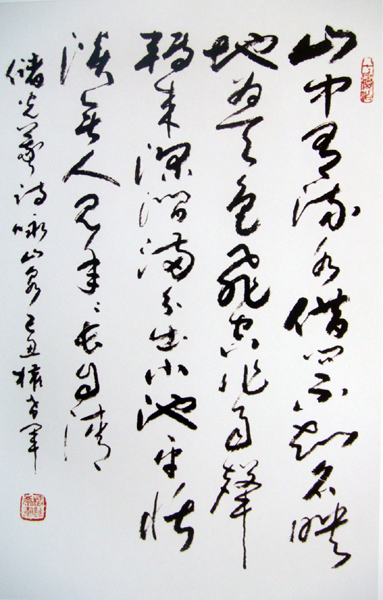 山中有流水借问不知名映
地为天色飞空作雨聲
轉来深涧满分出小池平恬
淡无人见年々长自清
储光羲诗咏山泉己丑